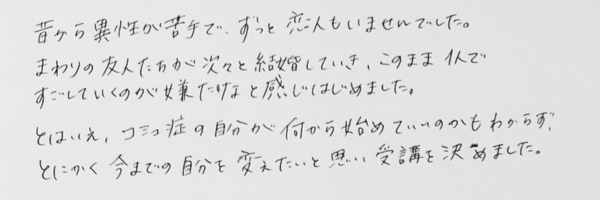 昔から異性が苦手で、ずっと恋人もいませんでした。
まわりの友人たちが次々と結婚していき、このまま1人で
すごしていくのが嫌だなと感じはじめました。
とはいえ、コミュ症の自分が何から始めていいのかもわからず、
とにかく今までの自分を変えたいと思い受講を決めました。